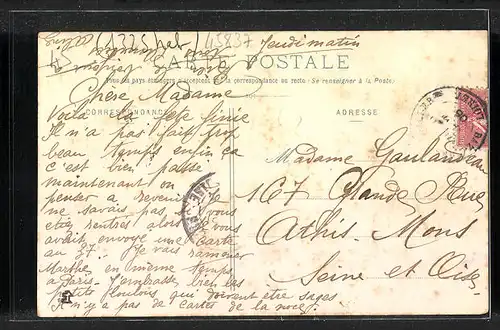 (4225 hab) 45837 Jeudi matin
CARTE POSTALE
Tous les pays étrangers n'acceptent pas la correspondance au recto (Se renseigner à la Poste)
CORRESPONDANCE
ADRESSE
Chère Madame
Voilà la fête finie
Il n'a pas fait trop
beau temps enfin ça
c'est bien passé
maintenant on
penser a revenir Je
ne savais pas si vous
etiez rentrés alors je vous
avait envoyé une carte
au 27. Je vais ramener
Marthe en même temps
a Paris. J'embrasse bien les
petits loulous qui doivent être sages
Il n'y a pas de cartes de la noce.
Madame Gaulandeau
167 Grande Rue
Athis-Mons
Seine et Oise